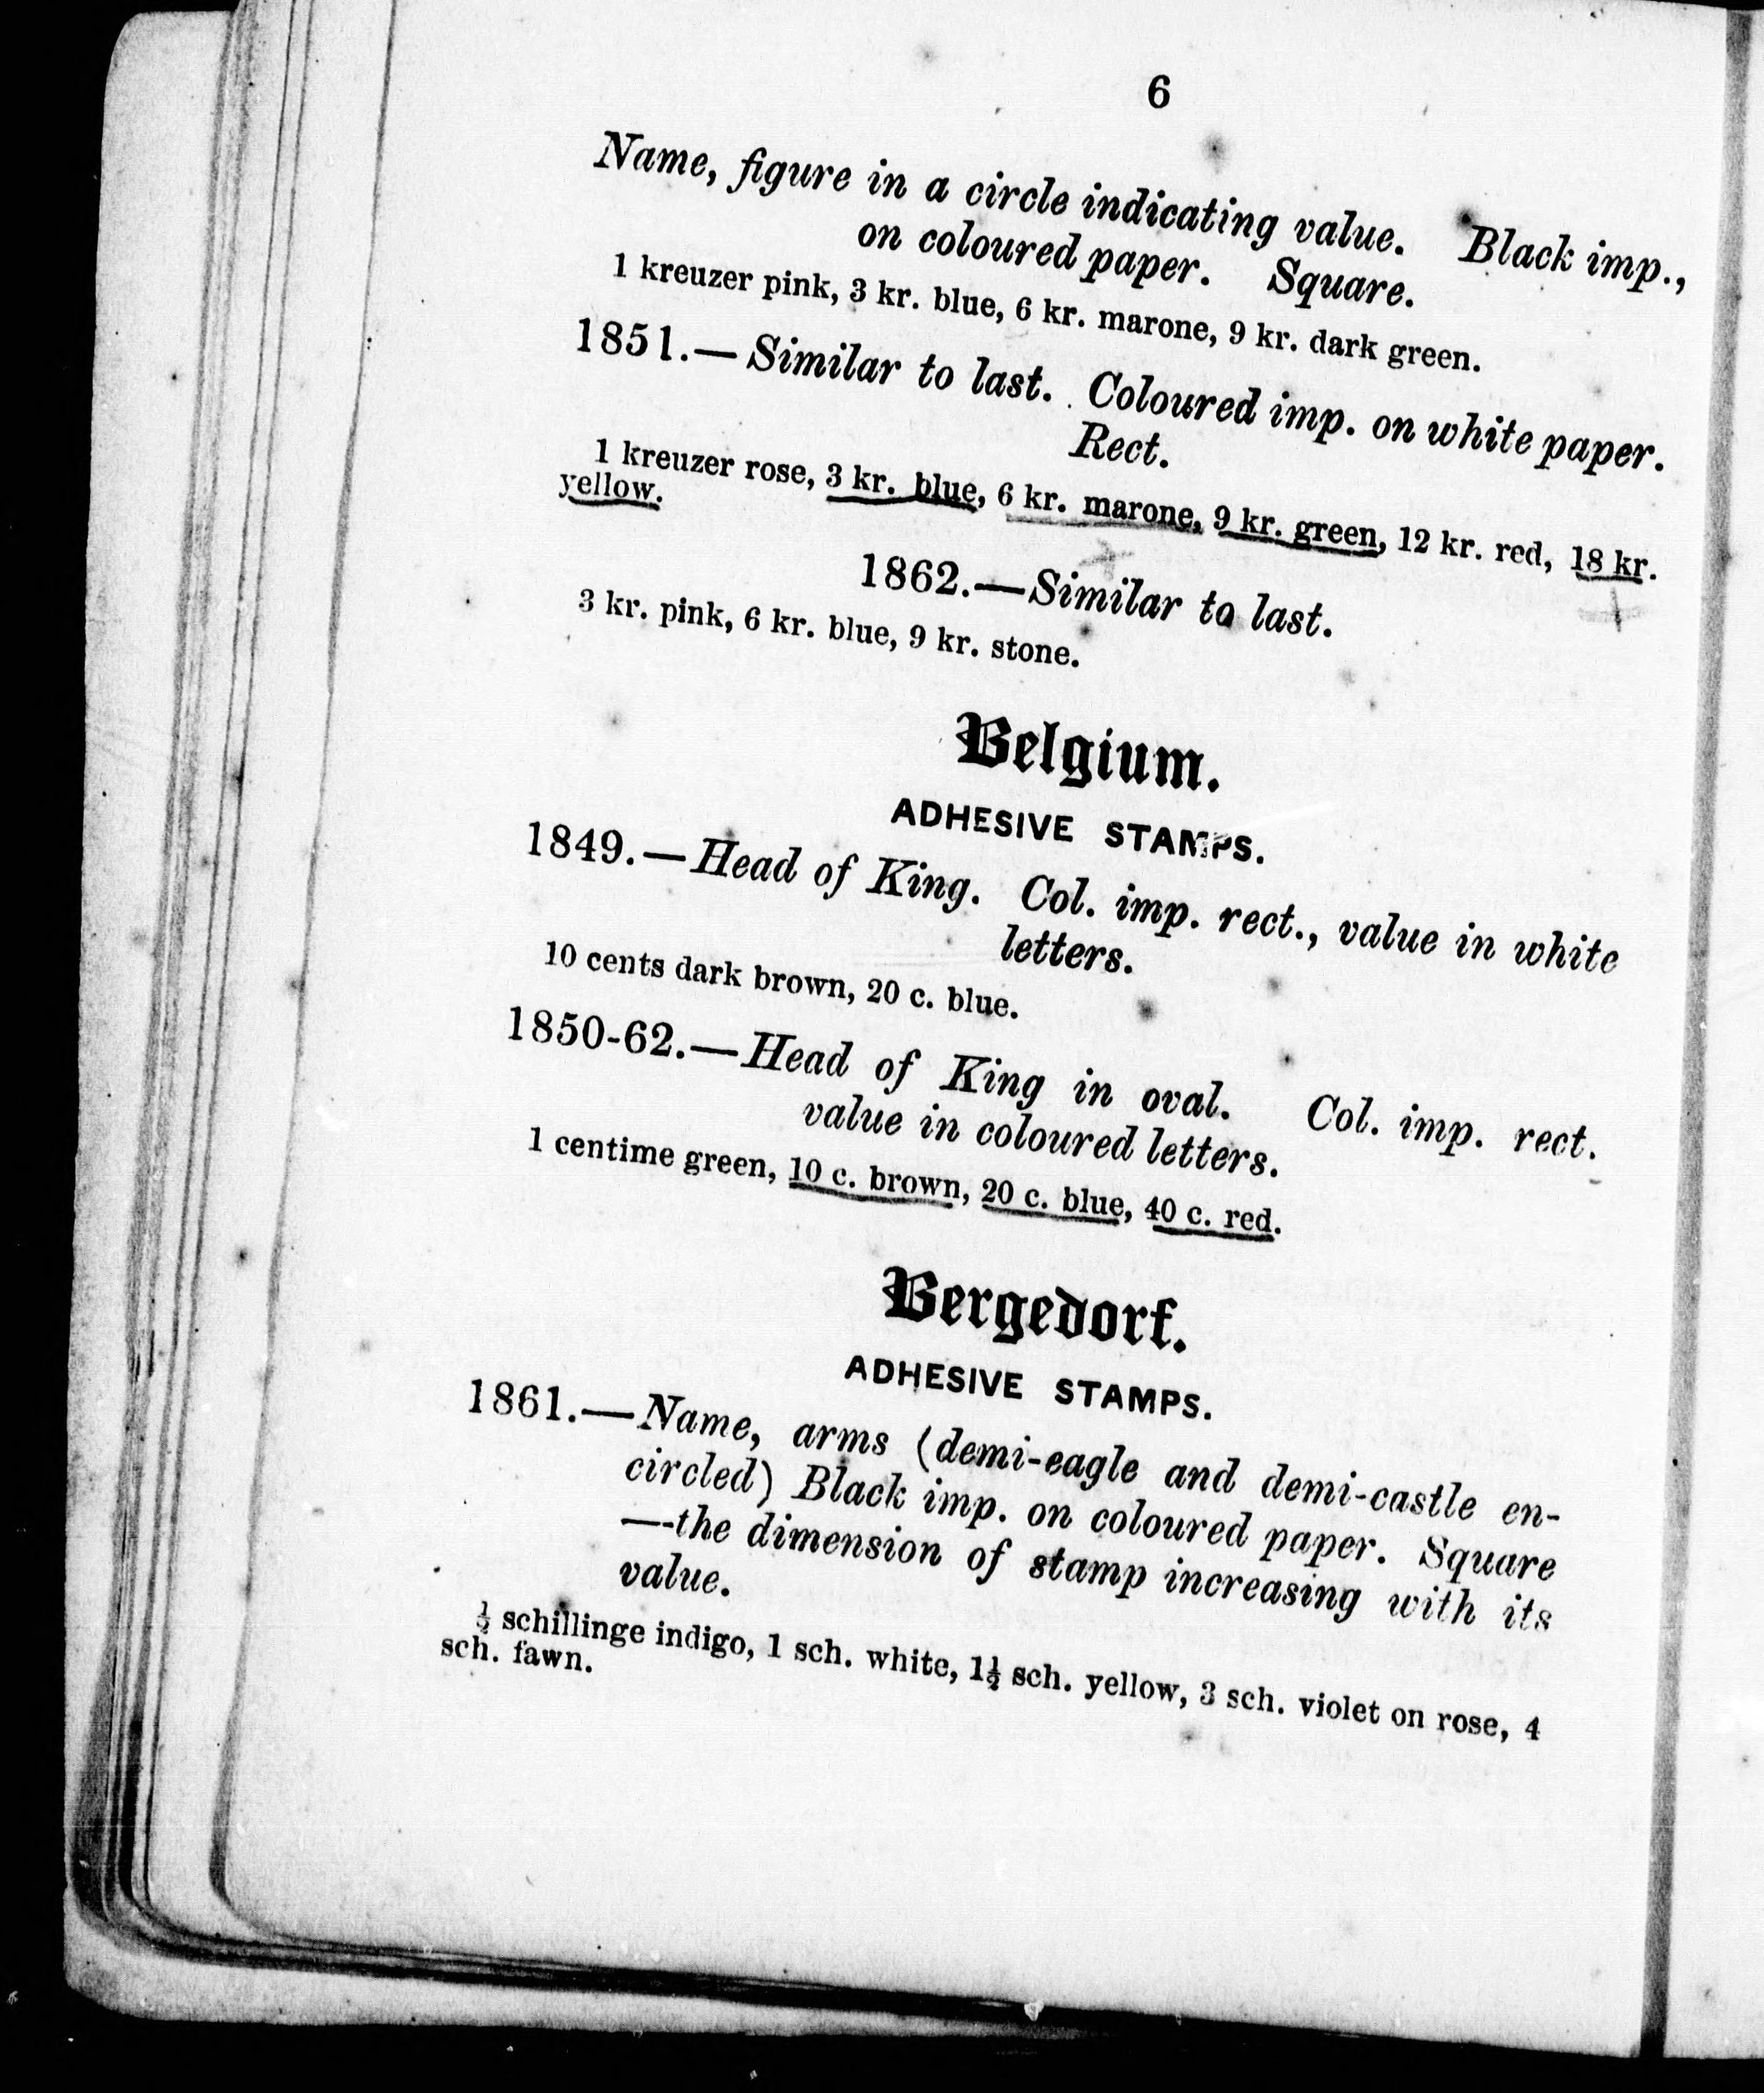 6
Name, figure in a circle indicating value. Black imp.,
on coloured paper. Square.
1 kreuzer pink, 3 kr. blue, 6 kr. marone, 9 kr. dark green.
1851.—Similar to last. Coloured imp. on white paper.
Rect.
1 kreuzer rose, 3 kr. blue, 6 kr. marone, 9 kr. green, 12 kr. red, 18 kr.
yellow.
1862.—Similar to last.
3 kr. pink, 6 kr. blue, 9 kr. stone.
Belgium.
ADHESIVE STAMPS.
1849.—Head of King. Col. imp. rect., value in white
letters.
10 cents dark brown, 20 c. blue.
1850-62.—Head of King in oval. Col. imp. rect.
value in coloured letters.
1 centime green, 10 c. brown, 20 c. blue, 40 c. red.
Bergedorf.
ADHESIVE STAMPS.
1861.—Name, arms (demi-eagle and demi-castle en-
circled) Black imp. on coloured paper. Square
—the dimension of stamp increasing with its
value.
½ schillinge indigo, 1 sch. white, 1½ sch. yellow, 3 sch. violet on rose, 4
sch. fawn.